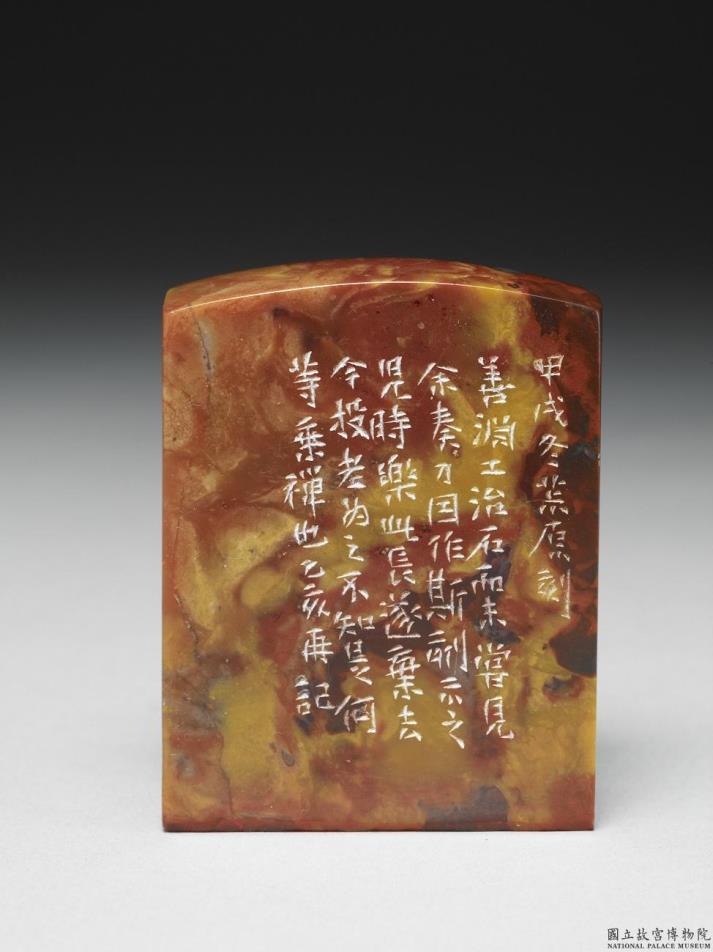 甲戌冬茮原刻
善淵工治石而未嘗見
余奏刀因作斯制示之
兒時樂此長遂棄去
今投老為之不知是何
等乘禪也乙亥再記
國立故宮博物院
NATIONAL PALACE MUSEUM